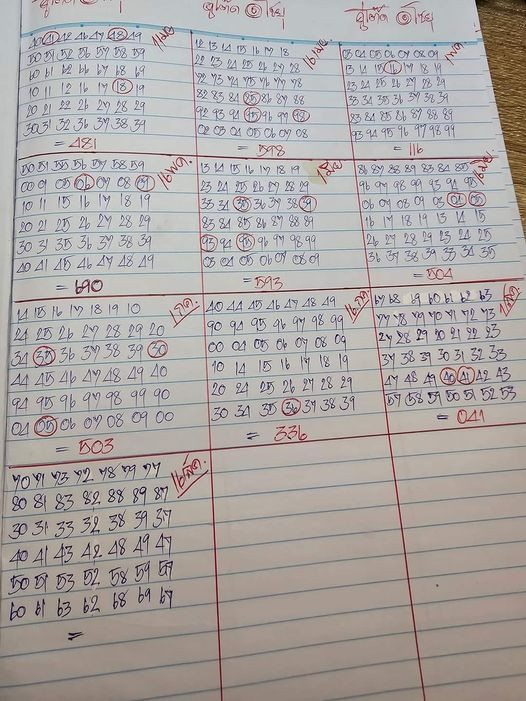 40 41 42 46 47 48 49
50 51 52 56 57 58 59
60 61 62 66 67 68 69
10 11 12 16 17 18 19
20 21 22 26 27 28 29
30 31 32 36 37 38 39
= 481
12 13 14 15 16 17 18
22 23 24 25 26 27 28
72 73 74 75 76 77 78
82 83 84 85 86 87 88
92 93 94 95 96 97 98
02 03 04 05 06 07 08
= 598
03 04 05 06 07 08 09
13 14 15 16 17 18 19
23 24 25 26 27 28 29
33 34 35 36 37 38 39
83 84 85 86 87 88 89
93 94 95 96 97 98 99
= 116
50 51 55 56 57 58 59
00 01 05 06 07 08 09
10 11 15 16 17 18 19
20 21 25 26 27 28 29
30 31 35 36 37 38 39
40 41 45 46 47 48 49
= 690
13 14 15 16 17 18 19
23 24 25 26 27 28 29
33 34 35 36 37 38 39
83 84 85 86 87 88 89
93 94 95 96 97 98 99
03 04 05 06 07 08 09
= 593
86 87 88 89 83 84 85
96 97 98 99 93 94 95
06 07 08 09 03 04 05
16 17 18 19 13 14 15
26 27 28 29 23 24 25
36 37 38 39 33 34 35
= 504
14 15 16 17 18 19 10
24 25 26 27 28 29 20
34 35 36 37 38 39 30
44 45 46 47 48 49 40
94 95 96 97 98 99 90
04 05 06 07 08 09 00
= 503
1 ก.ค.
40 44 45 46 47 48 49
90 94 95 96 97 98 99
00 04 05 06 07 08 09
10 14 15 16 17 18 19
20 24 25 26 27 28 29
30 34 35 36 37 38 39
= 336
16 ก.ค.
67 68 69 60 61 62 63
77 78 79 70 71 72 73
27 28 29 20 21 22 23
37 38 39 30 31 32 33
47 48 49 40 41 42 43
57 58 59 50 51 52 53
= 041
70 71 73 72 78 79 77
80 81 83 82 88 89 87
30 31 33 32 38 39 37
40 41 43 42 48 49 47
50 51 53 52 58 59 57
60 61 63 62 68 69 67
=
16 ส.ค.